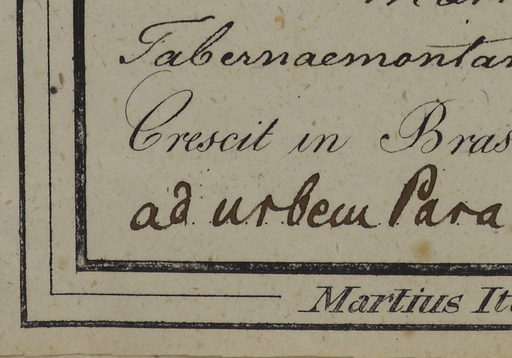 Tabernaemontan
Crescit in Bras
ad urbem Para
Martius It